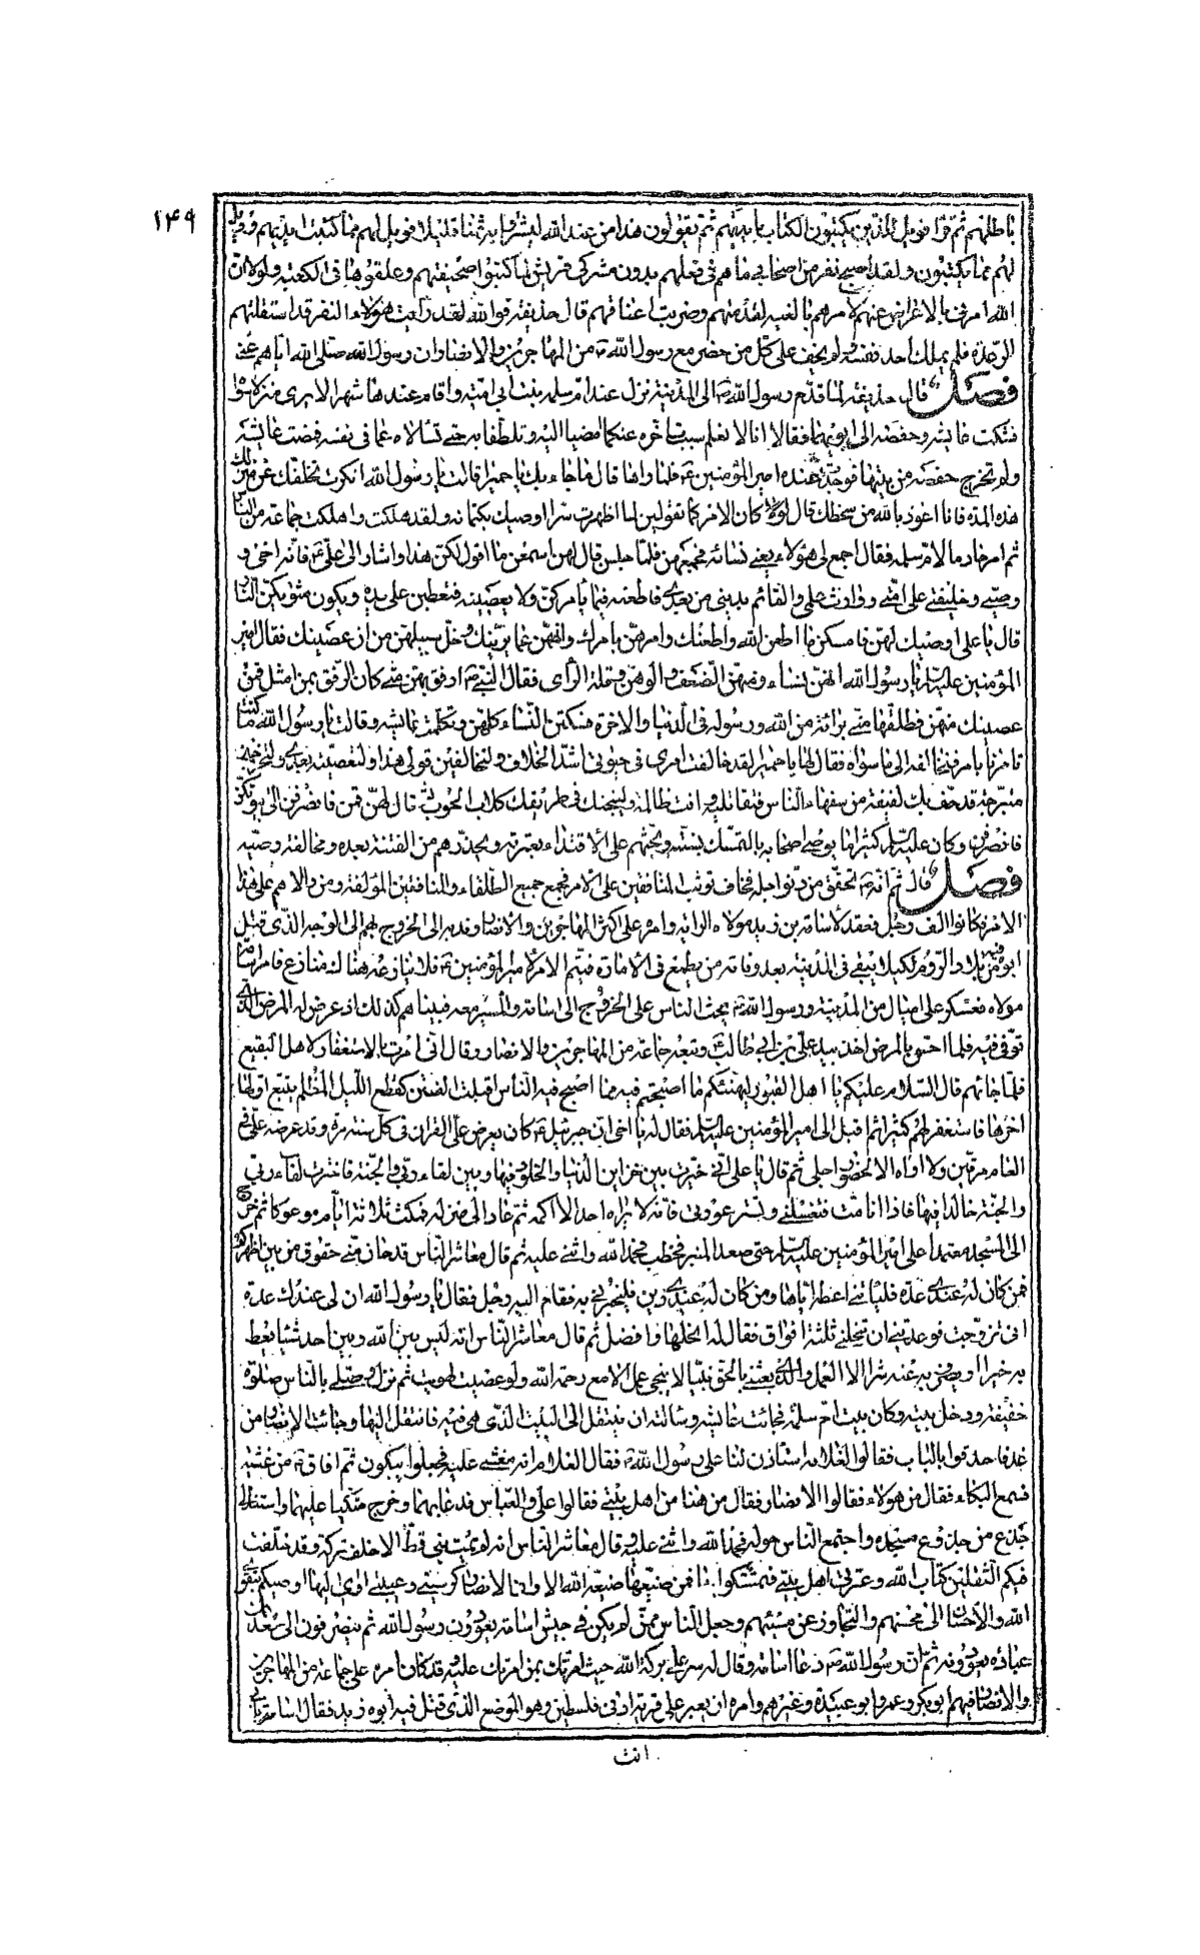 ۱۴۹
باطلهم ثم قرأ فويل للذين يكتبون الكتاب بايديهم ثم يقولون هذا من عند الله ليشتروا به ثمنا قليلا فويل لهم مما كتبت ايديهم وويل
لهم مما يكتبون ولقد اصبح نفر من اصحابي ما هم في فعلهم بدون مشركي قريش لما كتبوا صحيفتهم وعلقوها في الكعبة ولولا ان
الله امرني بالاعراض عنهم لامر هو بالغيه لقدمتهم وضربت اعناقهم قال حذيفة فوالله لقد رأيت هؤلاء النفر قد استقلتهم
الرعدة فلم يملك احد نفسه ولم يخف على كل من حضر مع رسول الله ص من المهاجرين والانصار ان رسول الله صلى الله اياهم عنى
فصل قال حذيفة لما قدم رسول الله ص الى المدينة نزل عند ام سلمة بنت ابي امية واقام عندها شهرا لا يرى منزلا سوا
فشكت عايشه وحفصه الى ابويهما فقالا انا لا نعلم سبب تاخره عنكما امضيا اليه وتلطفا به حتى تسئلاه عما في نفسه فمضت عايشه
ولم تخرج حفصه من بيتها فوجدت عنده امير المؤمنين ع فلما راها قال ما جاء بك يا حميرا قالت يا رسول الله انكرت تخلفك عن منزلك
هذه المدة فانا اعوذ بالله من سخطك قال لو كان الامر كما تقولين لما اظهرت سرا اوصيك بكتمانه ولقد هلكت واهلكت جماعة من الناس
ثم امر خادما لام سلمه فقال اجمع لي هؤلاء يعني نسائه فجمعهن فلما جلس قال لهن اسمعن ما اقول لكن هذا واشار الى علي ع فانه اخي و
وصيي وخليفتي على امتي ووارث علمي والقائم بديني من بعدي فاطعنه فيما يأمركن ولا تعصينه فتعطبن على يده ويكون مثويكن النار
قال يا علي اوصيك لهن فامسكن ما اطعن الله واطعنك وامرهن بامرك وانههن عما يريبك وخل سبيلهن من ان عصينك فقال امير
المؤمنين عليه السلام يا رسول الله انهن نساء ومنهن الضعف والوهن وقلة الرأى فقال النبي ص ارفق بهن متى كان الرفق بهن امثل فمن
عصينك منهن فطلقها متى برائة من الله ورسوله في الدنيا والاخرة فسكتن النساء كلهن وتكلمت عايشه وقالت يا رسول الله ما كنت
تامرنا بامر فنخالفه الى ما سواه فقال لها يا حميرا لقد خالفت امري في حيوتي اشد الخلاف ولتخالفين قولي هذا ولتعصينه بعدي ولتخرجين
متبرجة قد حف بك لفيفة من سفهاء الناس فتقاتليه وانت ظالمة ولينبحنك في طريقك كلاب الحوئب ثم قال لهن قمن فانصرفن الى بيوتكن
فانصرفن وكان عليه السلام كثيرا ما يوصي اصحابه بالتمسك بسنته ويحثهم على الاقتداء بعترته ويحذرهم من الفتنة بعده ومخالفة وصيه
فصل قال ثم انه ص تحقق من دنو اجله فخاف توثب المنافقين على الامر فجمع جميع الطلقاء والمنافقين المؤلفة ومن والاهم على هذا
الامر وكانوا الف رجل فعقد لاسامة بن زيد مولاه الراية وامره على اكثر المهاجرين والانصار وندبه الى الخروج بهم الى الوجه الذي قتل
ابوه فيه من بلاد الروم لكيلا يبقى في المدينة بعد وفاته من يطمع في الامارة فيتم الامر لامير المؤمنين ع فلا ينازعه هنالك منازع فامر اسامة
مولاه فعسكر على اميال من المدينة ورسول الله ص يحث الناس على الخروج الى اسامة والمسير معه فبينا هم كذلك اذ عرض له المرض الذي
توفي فيه فلما احس بالمرض اخذ بيد علي بن ابي طالب ع وتبعه جماعة من المهاجرين والانصار وقال اني امرت بالاستغفار لاهل البقيع
فلما جائهم قال السلام عليكم يا اهل القبور ليهنئكم ما اصبحتم فيه مما اصبح فيه الناس اقبلت الفتن كقطع الليل المظلم يتبع اولها
اخرها فاستغفر لهم كثيرا ثم اقبل الى امير المؤمنين عليه السلام فقال له يا اخي ان جبرئيل ع كان يعرض علي القران في كل سنة مرة وقد عرضه علي في
العام مرتين ولا اراه الا لحضور اجلي ثم قال يا علي اني خيرت بين خزاين الدنيا والخلود فيها وبين لقاء ربي والجنة فاخترت لقاء ربي
والجنة خالدا فيها فاذا انا مت فتغسلني وتستر عورتي فانه لا يراه احد الا اكمه ثم عاد الى منزله فمكث ثلاثة ايام موعوكا ثم خرج
الى المسجد معتمدا على امير المؤمنين عليه السلام حتى صعد المنبر فخطب فحمد الله واثنى عليه ثم قال معاشر الناس قد حان مني حقوق من بين اظهركم
فمن كان له عندي عدة فلياتني اعطه اياها ومن كان له عندي دين فليخبرني به فقام اليه رجل فقال يا رسول الله ان لي عندك عدة
اني تزوجت فوعدتني ان تنحلني ثلثة اواق فقال له انحلها وافضل ثم قال معاشر الناس انه ليس بين الله وبين احد شيئا يعط
به خيرا او يصرف به عنه شرا الا العمل والذي بعثني بالحق نبيا لا ينجي عمل الا مع رحمة الله ولو عصيت لهويت ثم نزل فصلى بالناس صلوة
خفيفة ودخل بيته وكان بيت ام سلمة فجائت عايشه وسئالته ان ينتقل الى البيت الذي هي فيه فانتقل اليها وجائت الانصار من
غد فاحدقوا بالباب فقالوا لغلامه استأذن لنا على رسول الله ص فقال الغلام انه مغشى عليه فجعلوا يبكون ثم افاق ص من غشيته
فسمع البكاء فقال من هؤلاء فقالوا الانصار فقال من هنا من اهل بيتي فقالوا علي والعباس فدعا بهما وخرج متكيا عليهما واستند الى
جذع من جذوع مسجده واجتمع الناس حوله فحمد الله واثنى عليه وقال معاشر الناس انه لم يمت نبي قط الا خلف تركة وقد خلفت
فيكم الثقلين كتاب الله وعترتي اهل بيتي فتمسكوا بهما فمن ضيعهما ضيعه الله الا وان الانصار كرشي وعيبتي اوى اليها اوصيكم بتقوى
الله والاحسان الى محسنهم والتجاوز عن مسيئهم وجعل الناس ممن لم يكن في جيش اسامة يعودون رسول الله ثم ينصرفون الى سعد بن
عباده يعودونه ثم ان رسول الله ص دعا اسامة وقال له سر على بركة الله حيث امرتك بمن امرتك عليه وقد كان امره على جماعة من المهاجرين
والانصار فيهم ابو بكر وعمر وابو عبيدة وغيرهم وامره ان يعبر على قرية ادنى فلسطين وهو الموضع الذي قتل فيه ابوه زيد فقال اسامة بابي
انت